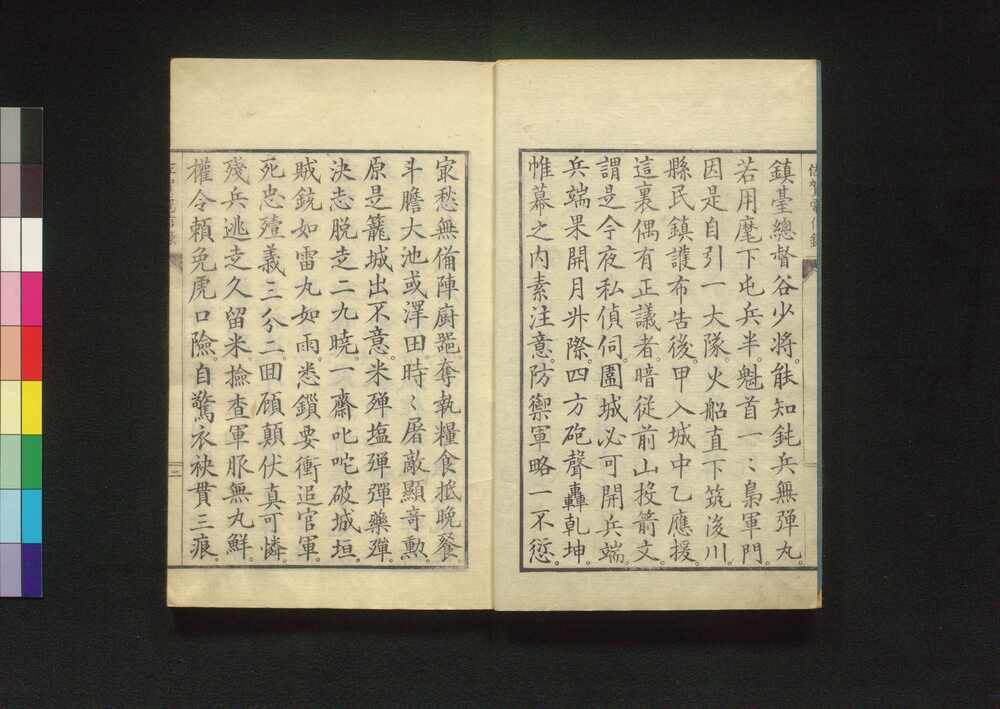 鎮臺總督谷少将。能知鈍兵無弾丸。
若用麾下屯兵半。魁首一〻梟軍門。
因是自引一大隊。火船直下筑後川。
縣民鎮護布告後。甲入城中乙應援。
這裏偶有正議者。暗従前山投箭文。
謂是今夜私偵伺。圍城必可開兵端。
兵端果開月舛際。四方砲聲轟乾坤。
帷幕之内素注意。防禦軍略一不愆。
寂愁無俻陣厨噐。奪執糧食抵晩餐。
斗膽大池或澤田。時〻屠敵顯竒勲。
原是籠城出不意。米殫塩殫彈藥殫。
決志脱走二九暁。一齋叱咤破城垣。
賊銃如雷丸如雨。悉鎖要衝追官軍。
死忠殪義三分二。囬顧顛伏真可憐。
殘兵逃走久留米。撿查軍服無丸鮮。
權令頼免虎口險。自驚衣袂貫三痕。
二